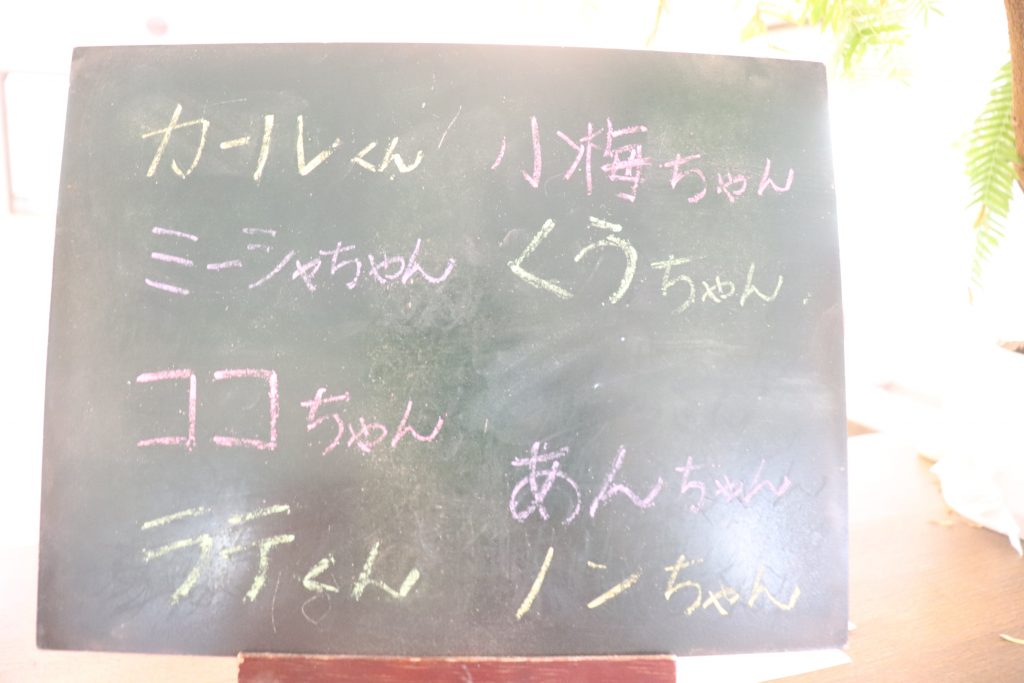 カールくん
ミーシャちゃん
ココちゃん
ラテくん
小梅ちゃん
くうちゃん
あんちゃん
ノンちゃん